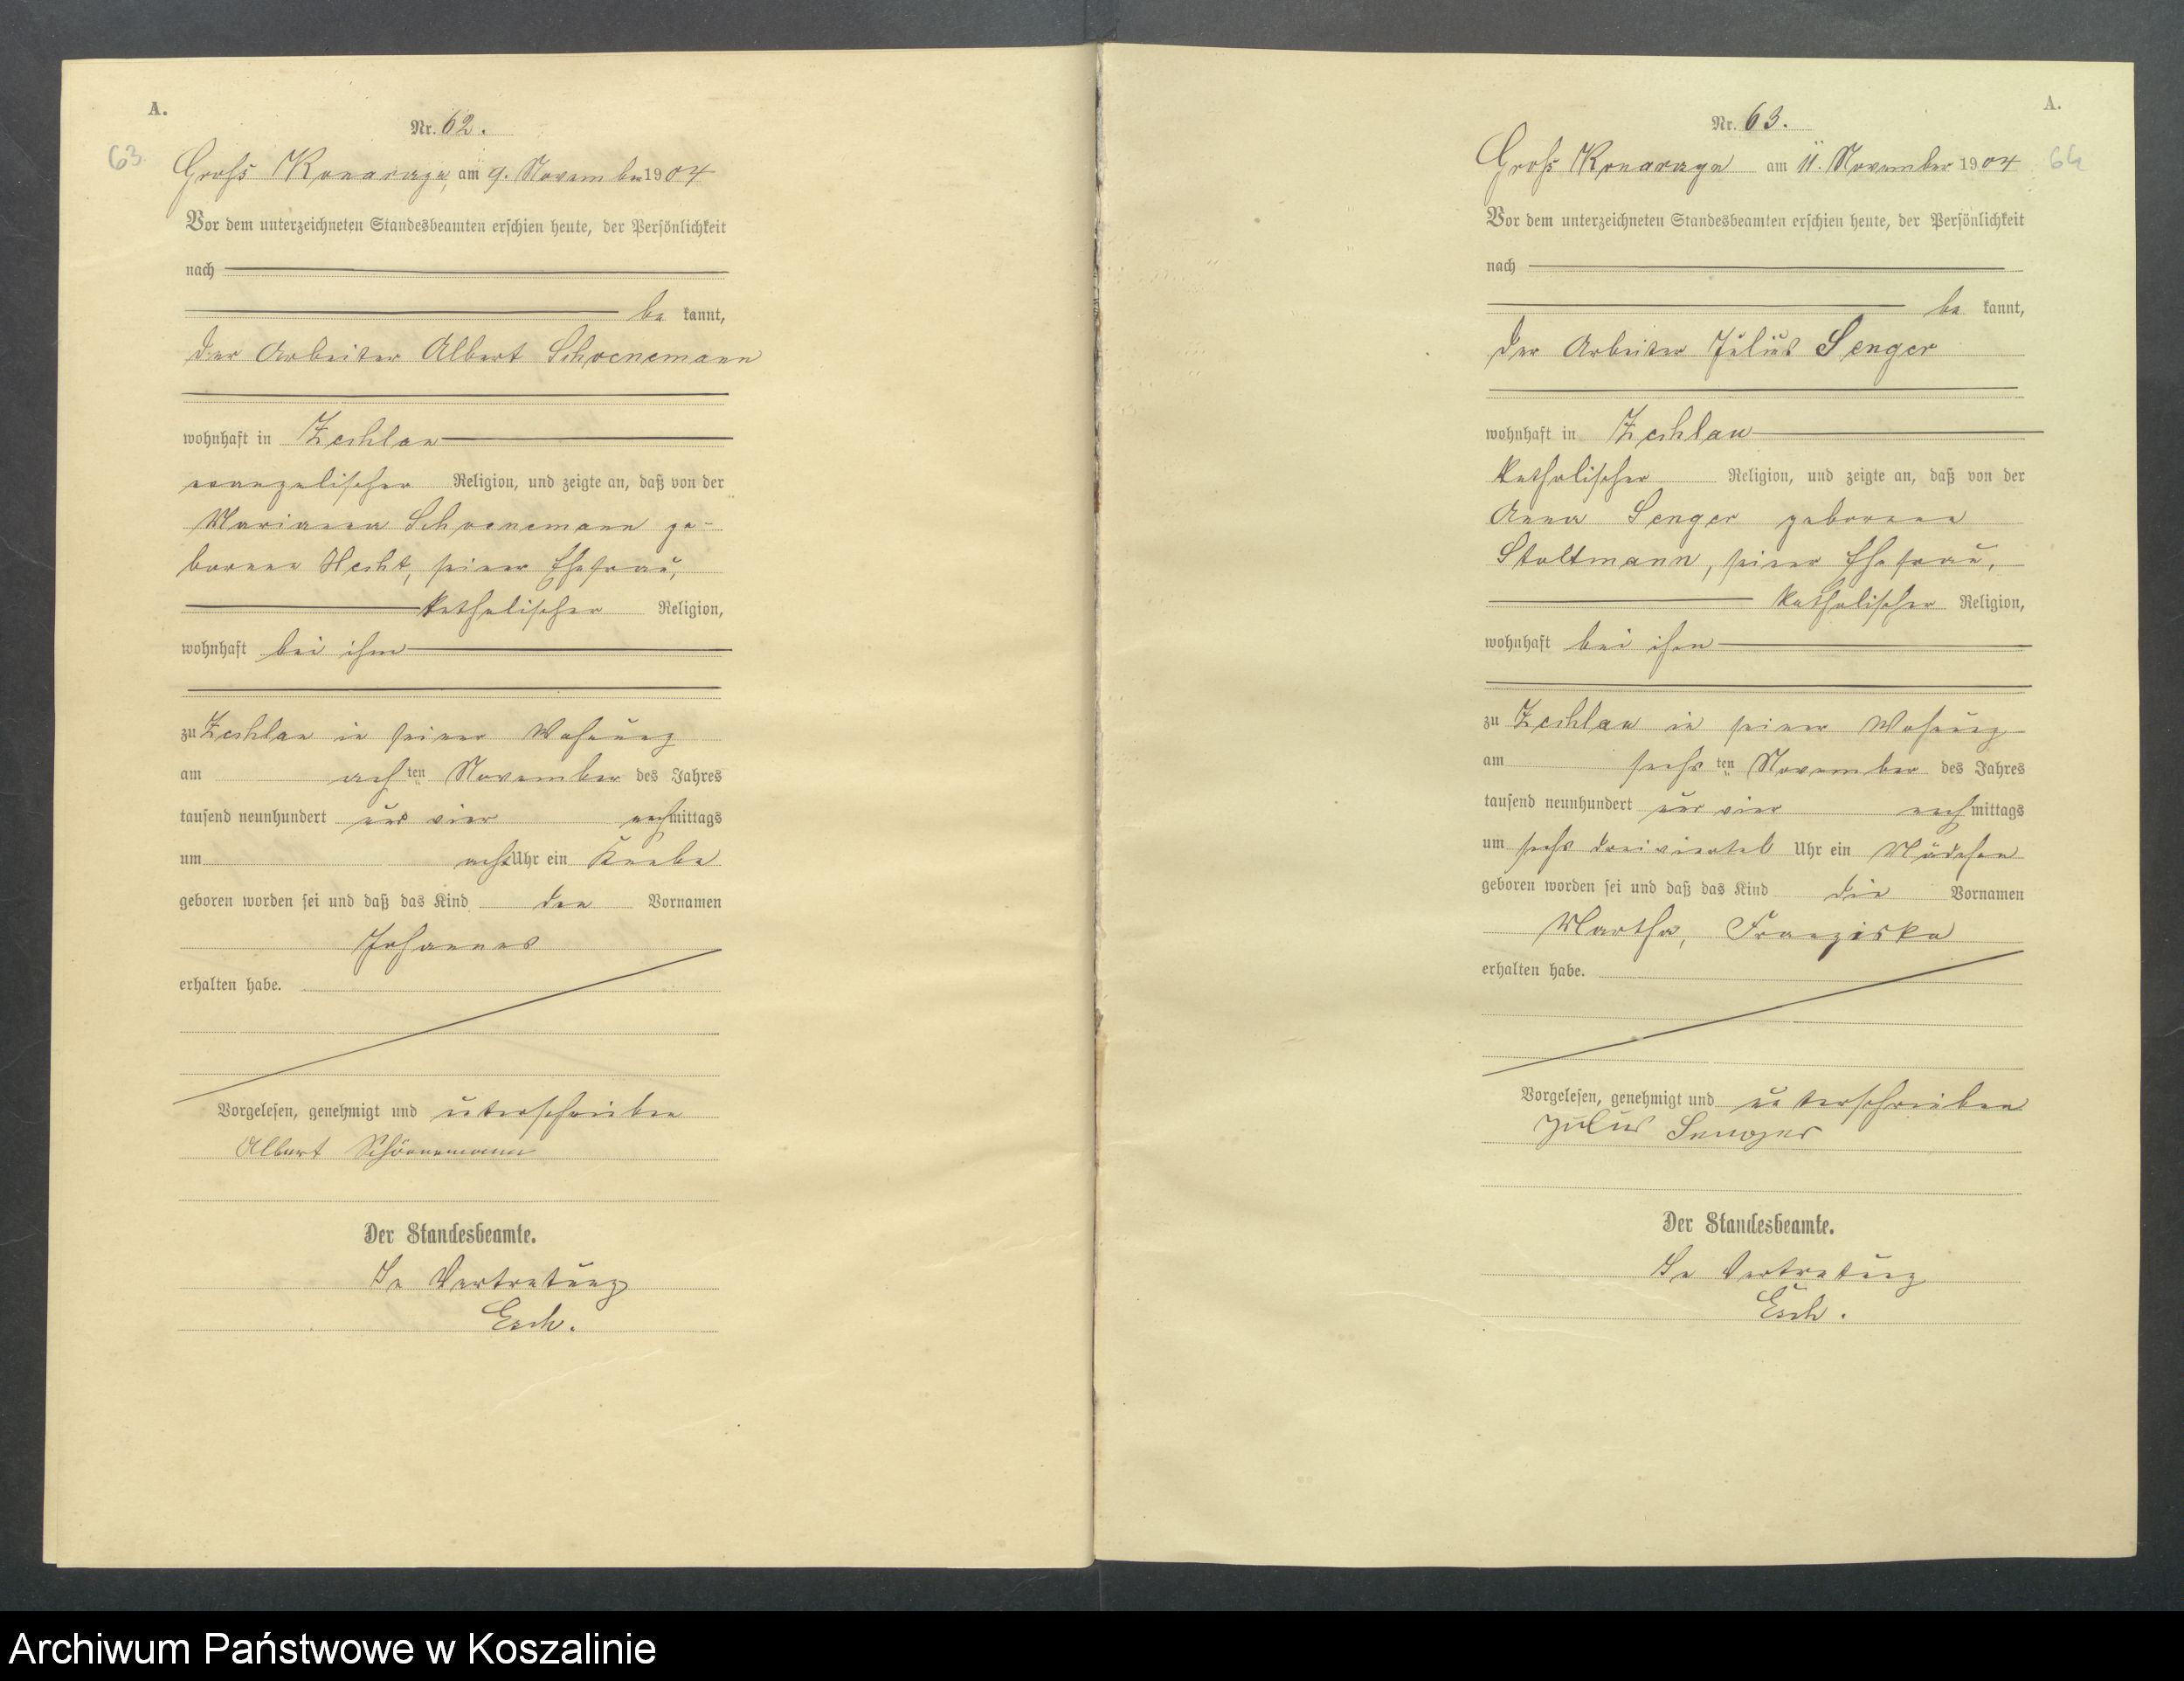 A.
Nr. 62.
63.
Groß Konarczyn, am 9. November 1904
Vor dem unterzeichneten Standesbeamten erschien heute, der Persönlichkeit
nach
be kannt,
der Arbeiter Albert Schoenemann
wohnhaft in Zechlau
evangelischer Religion, und zeigte an, daß von der
Marianna Schoenemann ge-
borene Hecht, seiner Ehefrau,
katholischer Religion,
wohnhaft bei ihm
zu Zechlau in seiner Wohnung
am achten November des Jahres
tausend neunhundert und vier nachmittags
um acht Uhr ein Knabe
geboren worden sei und daß das Kind den Vornamen
Johannes
erhalten habe.
Vorgelesen, genehmigt und unterschrieben
Albert Schönemann
Der Standesbeamte.
In Vertretung
Esch.
A.
Nr. 63.
64
Groß Konarczyn am 11. November 1904
Vor dem unterzeichneten Standesbeamten erschien heute, der Persönlichkeit
nach
be kannt,
der Arbeiter Julius Senger
wohnhaft in Zechlau
katholischer Religion, und zeigte an, daß von der
Anna Senger geborene
Stoltmann, seiner Ehefrau,
katholischer Religion,
wohnhaft bei ihm
zu Zechlau in seiner Wohnung
am sechsten November des Jahres
tausend neunhundert und vier nachmittags
um sechs dreiviertel Uhr ein Mädchen
geboren worden sei und daß das Kind die Vornamen
Martha, Franziska
erhalten habe.
Vorgelesen, genehmigt und unterschrieben
Julius Senger
Der Standesbeamte.
In Vertretung
Esch.
Archiwum Państwowe w Koszalinie